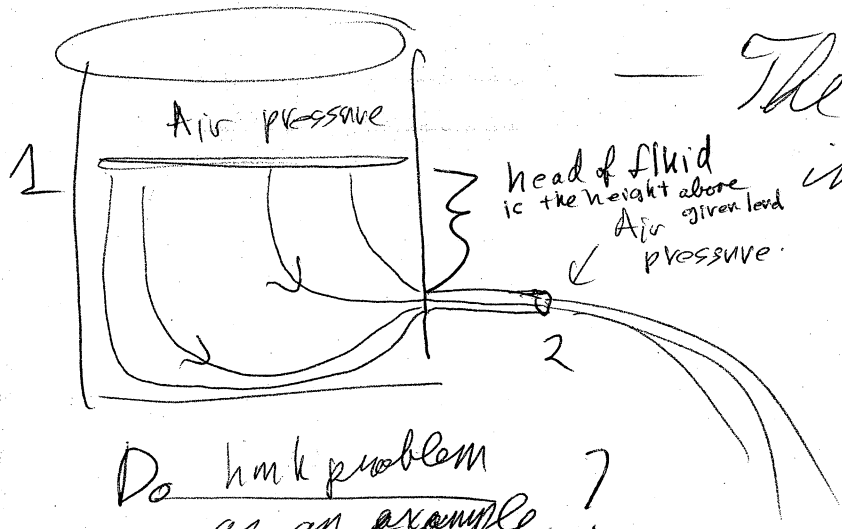 The
Air pressure
1
head of fluid
is the height above
given level
in
Air
pressure.
2
Do hmk problem ?
as an example